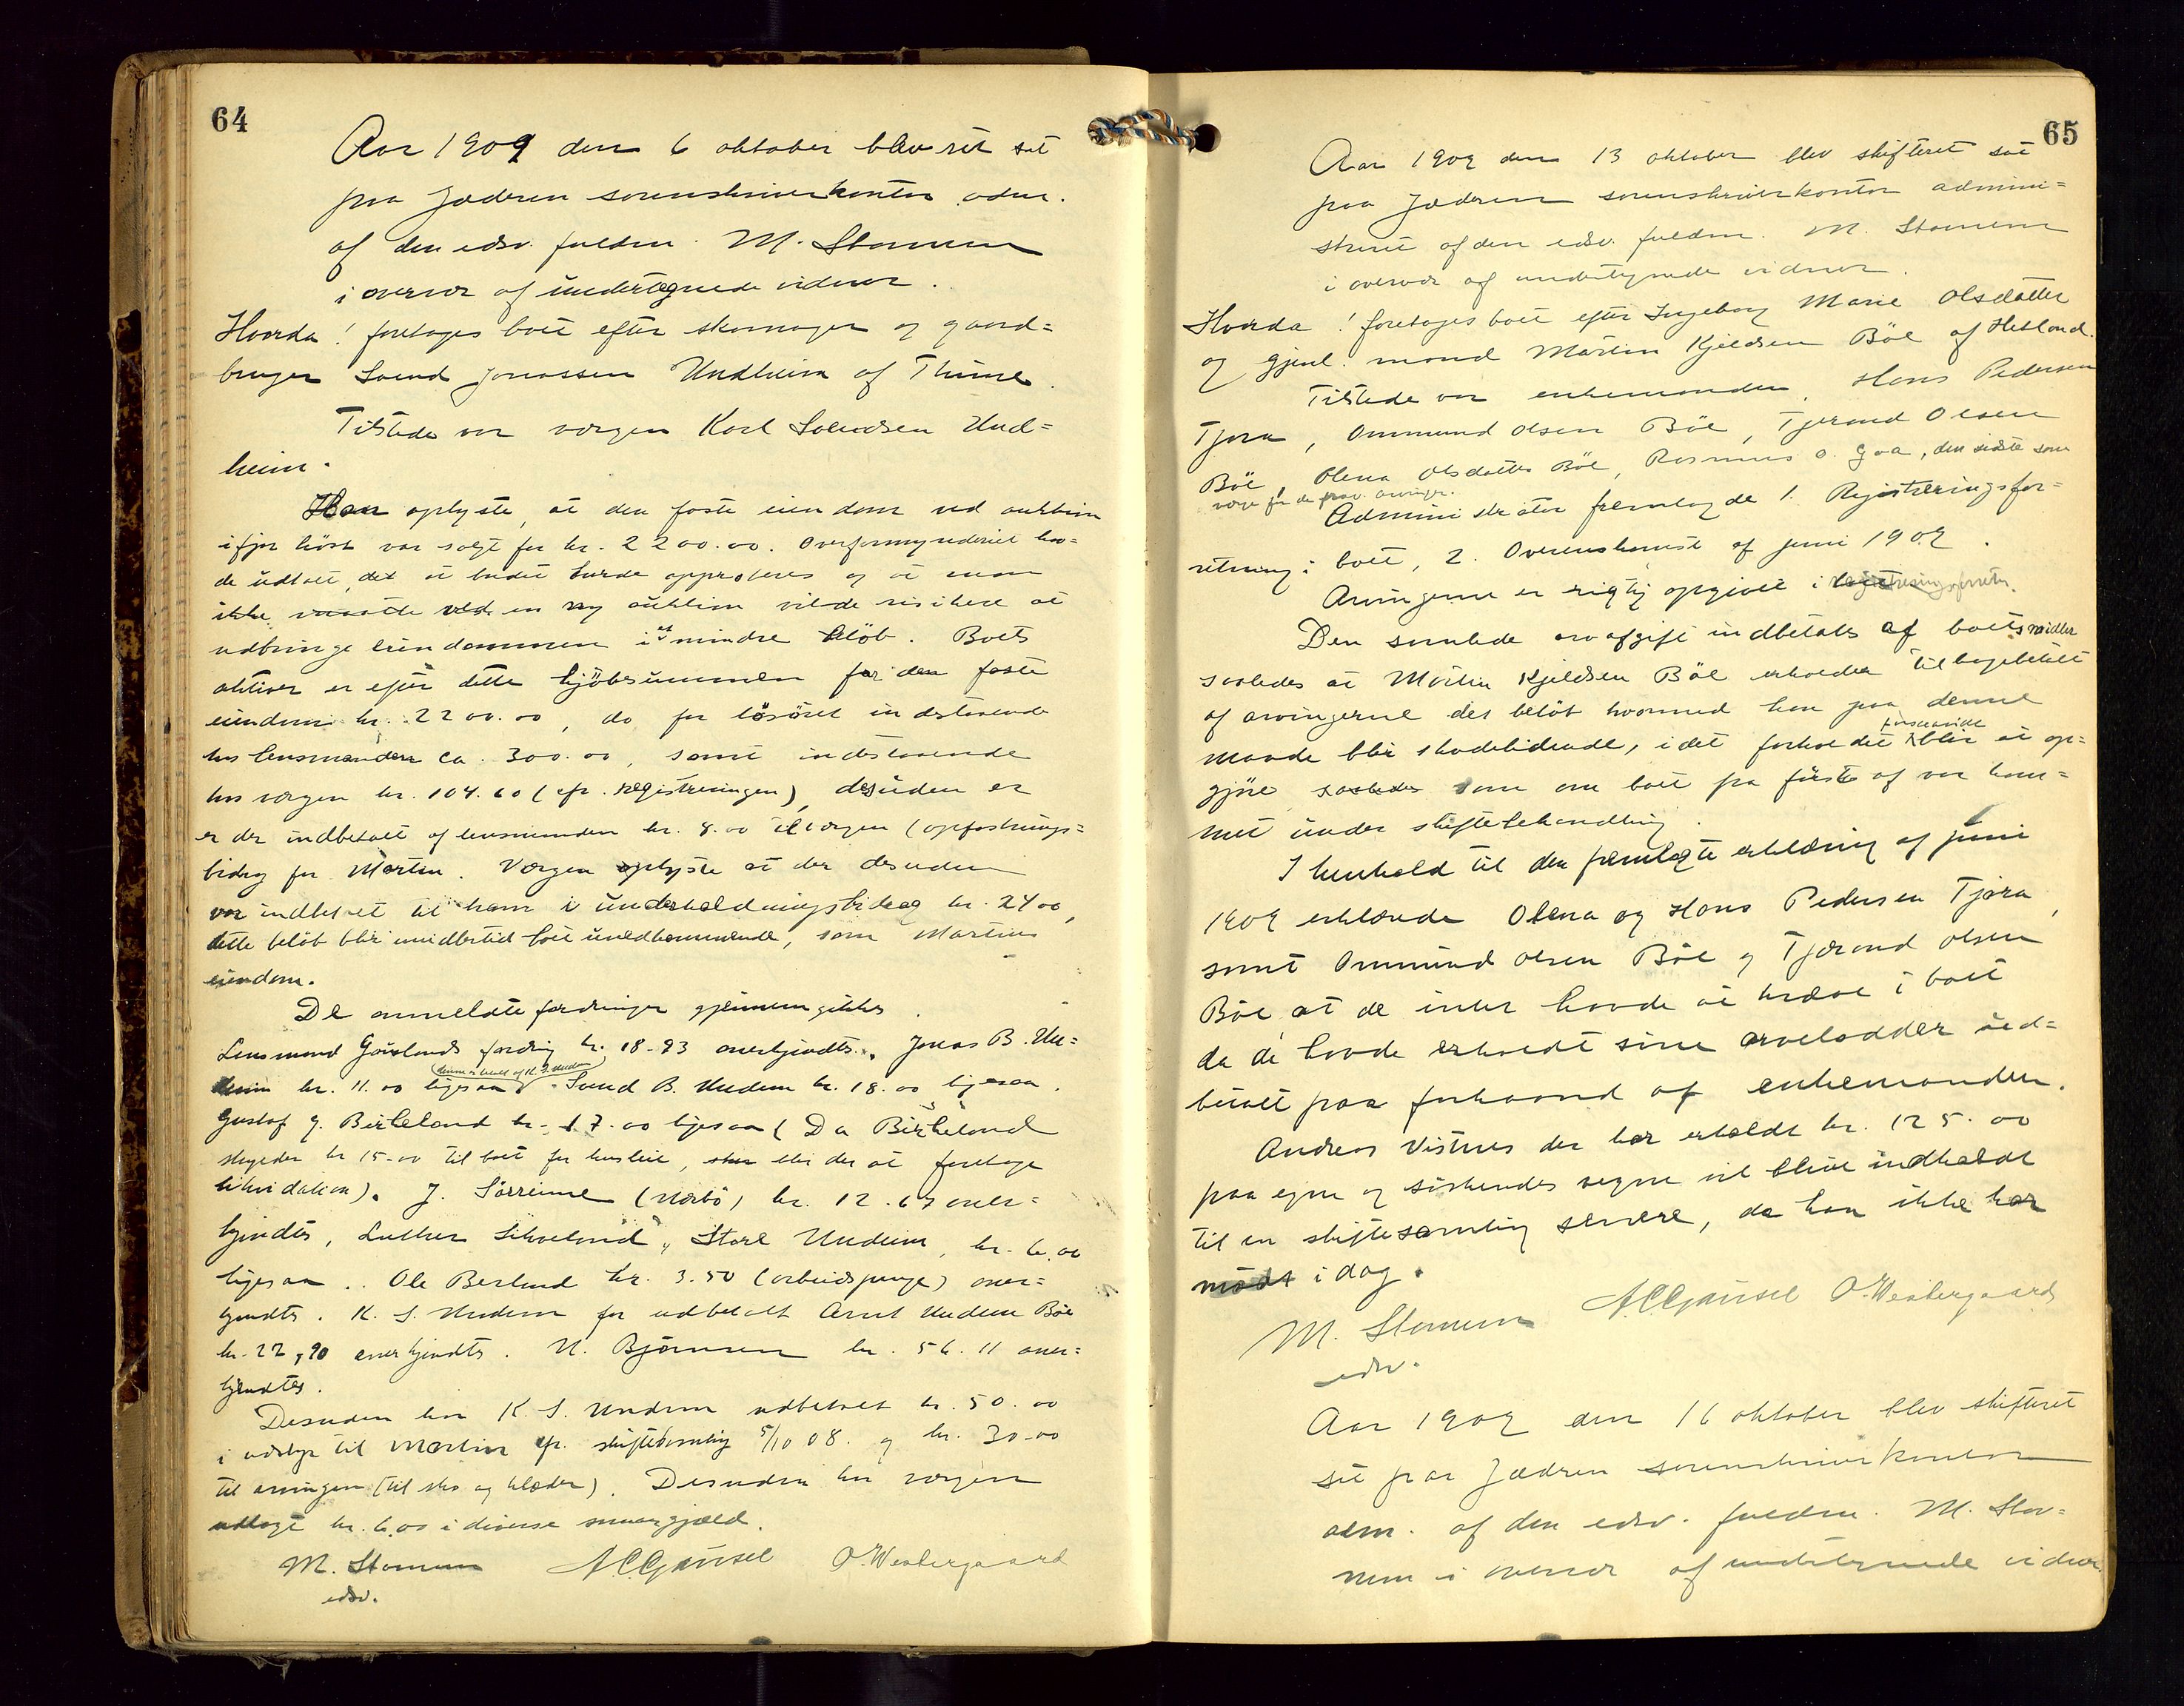 64
Aar 1909 den 6 oktober blev ret sat
paa Jæderen sorenskriverkontor adm.
af den edsv. fuldm. M. Stamnem
i overvær af undertegnede vidner.
Hvorda! foretoges boet efter skomager og gaard=
bruger Svend Jonassen Undheim af Thime.
Tilstede var værgen Karl Svendsen Und=
heim.
Han oplyste, at den faste eiendom ved auktion
ifjor höst var solgt for kr. 2200.00. Overformynderiet hav=
de udtalt, det at budet burde approberes og at man
ikke maatte ved en ny auktion vilde risikere at
udbringe eiendommen i et mindre belöb. Boets
aktiver er efter dette kjöbesummen for den faste
eiendom kr. 2200.00, do for lösöret indestaaende
hos lensmanden ca. 300.00, samt indestaaende
hos værgen kr. 104.60 (cfr. registreringen), desuden er
er der indbetalt af lensmanden kr. 8.00 til værgen (opfostrings=
bidrag for Martin. Værgen oplyste at der desuden
var indbetalt til ham i underholdningsbidrag kr. 24 00,
dette belöb blir imidlertid boet uvedkommende, som Martins
eiendom.
De anmeldte fordringer gjennemgikkes.
Lensmand Gauslands fordring kr. 18-93 anerkjendtes. Jonas B. Un=
dheim kr. 11.00 ligesaa. Svend B. Undem kr. 18.00 ligesaa.
Gustof G. Birkeland kr. 17.00 ligesaa (Da Birkeland
skyder kr 15-00 til boet for husleie, blir der at foretage
likvidation). J. Sörreime (Nærbö) kr. 12.67 aner=
kjendtes, Luther Sikveland, Store Undeim, kr. 6.00
ligesaa. Ole Berlund kr. 3.50 (arbeidspenge) aner=
kjendtes. K. S. Undem for udbetalt Arnt Undem Böe
kr. 22,90 anerkjendtes. N. Björnsen kr. 56.11 aner=
kjendtes.
Desuden har K. S. Undem udbetalt kr. 50.00
i udstyr til Martin cfr. skiftesamling 5/10 08. og kr. 30-00
til arvingen (til sko og klæder). Desuden har værgen
udlagt kr. 6.00 i diverse smaagjæld.
M. Stamnem A C Gausel O. Westergaard
edsv.
65
Aar 1909 den 13 oktober blev skifteret sat
paa Jæderen sorenskriverkontor admini=
streret af den edsv. fuldm. M. Stamnem
i overvær af undertegnede vidner.
Hvorda! foretoges boet efter Ingeborg Marie Olsdatter
og gjenl. mand Martin Kjeldsen Böe af Hetland.
Tilstede var enkemanden, Hans Pedersen
Tjora, Ommund Olsen Böe, Tjerand Olsen
Böe, Olena Olsdatter Böe, Rasmus O. Goa, den sidste som
værge for de fravær. arvinger.
Administrator fremlagde 1. Registreringsfor=
retning i boet, 2. Overenskomst af juni 1909.
Arvingerne er rigtig opgivet i registreringsforretn.
Den samlede arveafgift indbetales af boets midler
saaledes at Martin Kjeldsen Böe erholder tilbagebetalt
af arvingerne det belöb hvormed han paa denne
maade blir skadelidende, idet forholdet forsaavidt blir at op=
gjöre saaledes som om boet fra förste af var kom=
met under skiftebehandling.
I henhold til den fremlagte erklæring af juni
1909 erklærede Olena og Hans Pedersen Tjora,
samt Ommund Olsen Böe og Tjerand Olsen
Böe, at de intet havde at kræve i boet
da de havde erholdt sine arvelodder ud=
betalt paa forhaand af enkemanden.
Andreas Vistnes der har erholdt kr. 125.00
paa egne og söskendes vegne vil blive indkaldt
til en skiftesamling senere, da han ikke har
mödt idag.
M. Stamnem A C Gausel O. Westergaard
edsv.
Aar 1909 den 16 oktober blev skifteret
sat paa Jæderen sorenskriverkontor
adm. af den edsv. fuldm. M. Stam=
nem i overvær af undertegnede vidner.